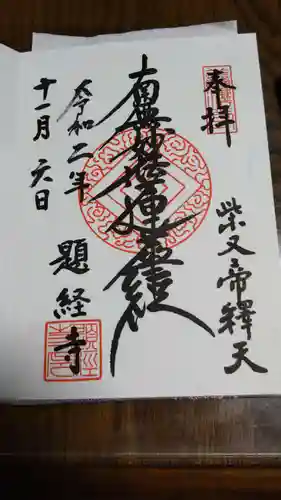 奉拝
柴又帝釋天
南無妙法蓮華経
令和二年
十一月六日
題経寺